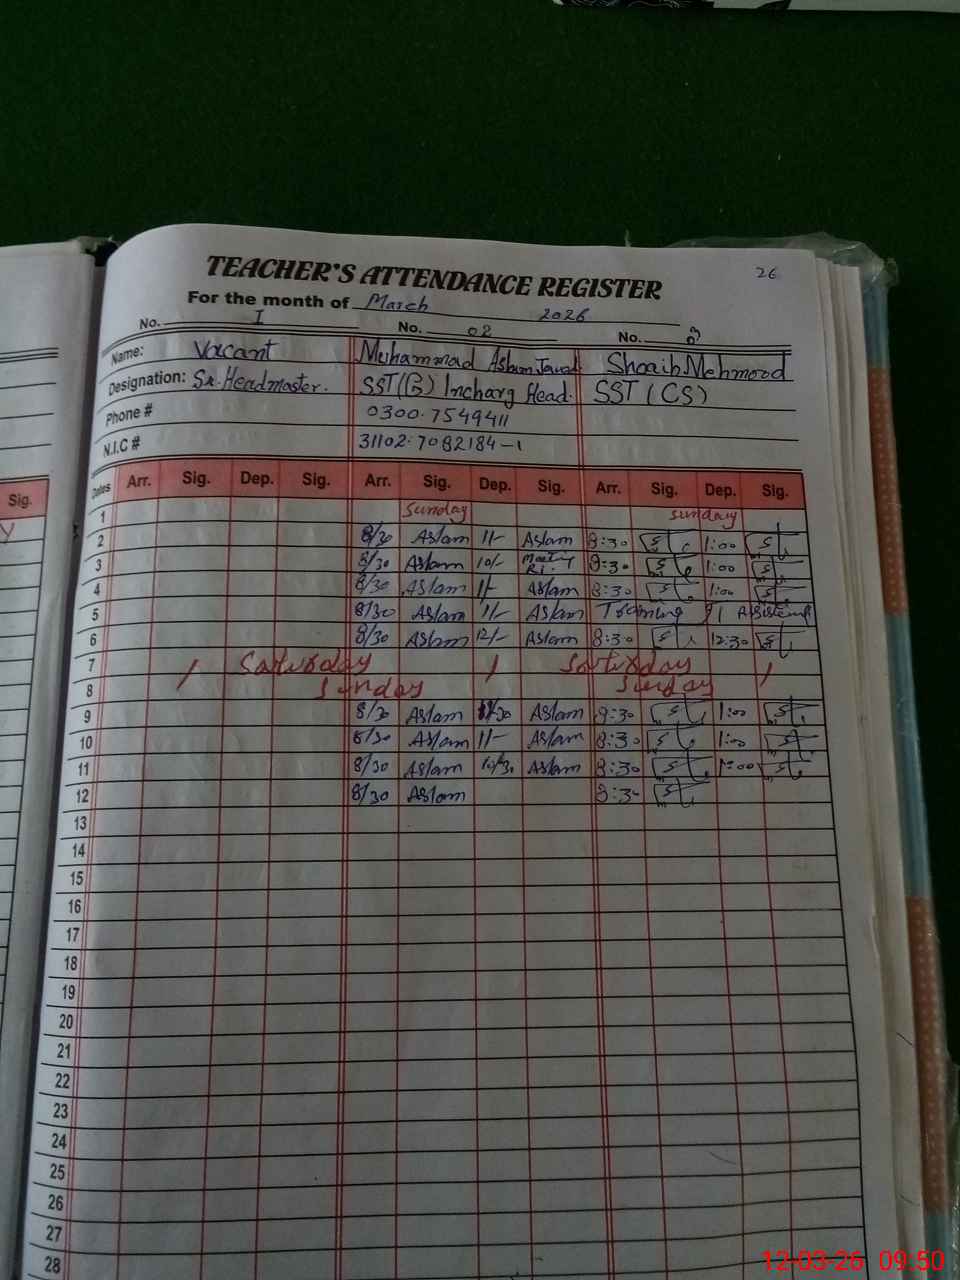 26
TEACHER'S ATTENDANCE REGISTER
For the month of March 2026
No. I No. 02 No. 3
Name: Vacant Muhammad Aslam Javed Shoaib Mehmood
Designation: Sr. Headmaster. SST(G) Incharg Head. SST (CS)
Phone # 0300-7549411
N.I.C # 31102-7082184-1
Sig. Dates Arr. Sig. Dep. Sig. Arr. Sig. Dep. Sig. Arr. Sig. Dep. Sig.
1 Sunday Sunday
2 8/30 Aslam 11/- Aslam 8:30 1:00
3 8/30 Aslam 10/- 8:30 1:00
4 8/30 Aslam 11/- Aslam 8:30 1:00
5 8/30 Aslam 11/- Aslam Training
6 8/30 Aslam 12/- Aslam 8:30 12:30
7 Saturday Saturday
8 Sunday Sunday
9 8/30 Aslam Aslam 8:30 1:00
10 8/30 Aslam 11/- Aslam 8:30 1:00
11 8/30 Aslam 10/30 Aslam 8:30 1:00
12 8/30 Aslam 8:30
13
14
15
16
17
18
19
20
21
22
23
24
25
26
27
28
12-03-26 09:50